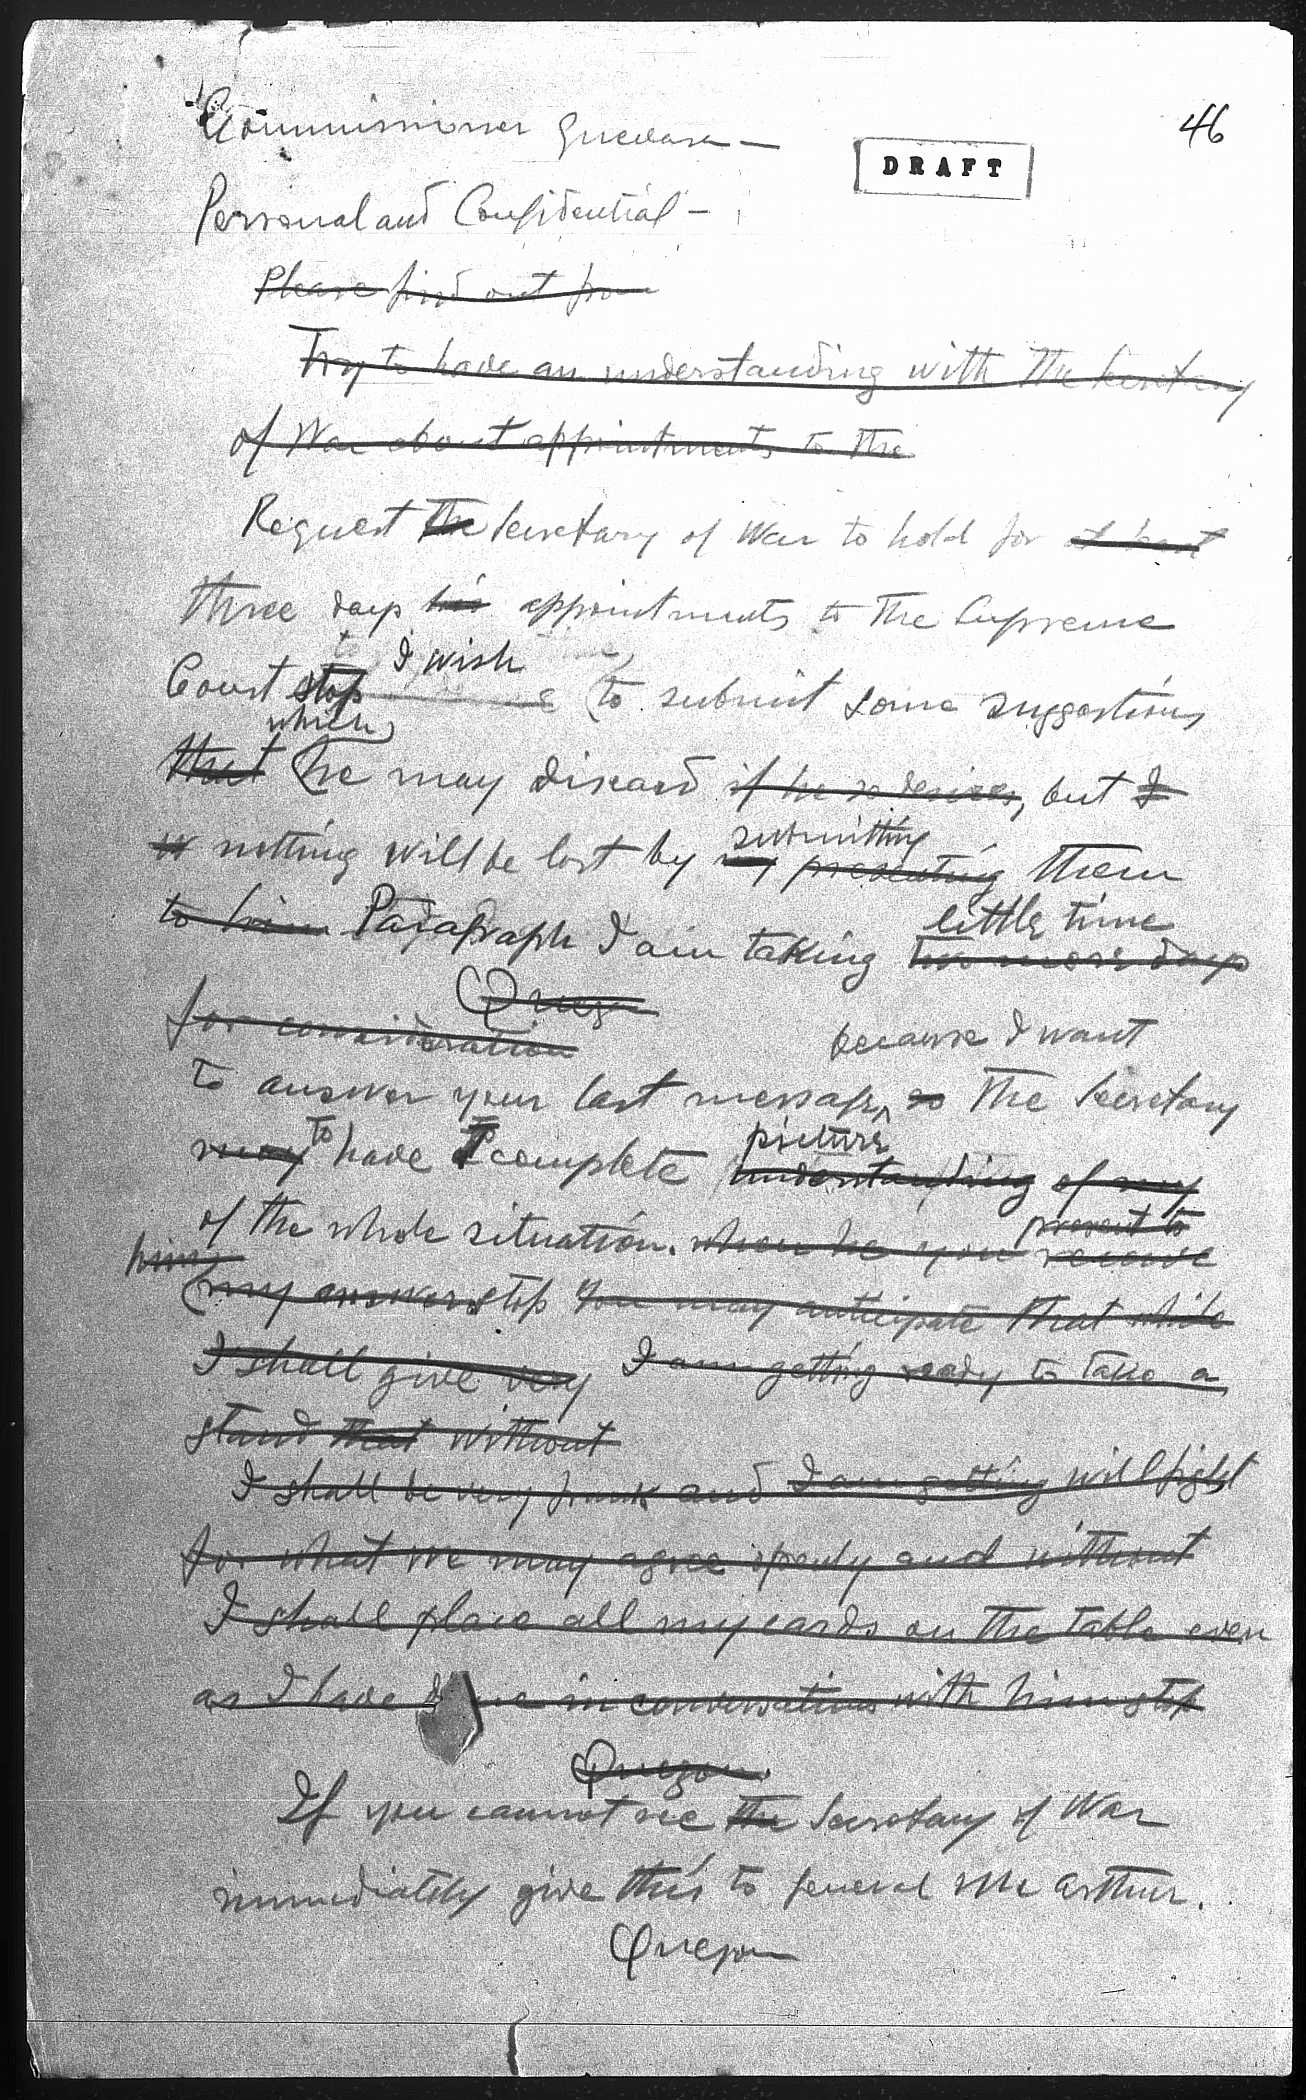 46
Commissioner Guevara —
DRAFT
Personal and Confidential —
Please find out from
Try to have an understanding with the Secretary
of War about appointments to the
Request the Secretary of War to hold for at least
three days his appointments to the Supreme
to I wish
Court stop to submit some suggestions
which
that he may discard if he so desires, but I
nothing will be lost by my presenting them
submitting
to him Paragraph I am taking two more days
little time
Quezon
for consideration because I want
to answer your last message, so the Secretary
may to have a complete understanding of my
picture
of the whole situation. when he you receive
present to
him
my answer stop You may anticipate that while
I shall give very I am getting ready to take a
stand that without
I shall be very frank and I am getting will fight
for what we may agree openly and without
I shall place all my cards on the table even
as I have done in conversations with him stop
Quezon
If you cannot see the Secretary of War
immediately give this to General McArthur.
Quezon